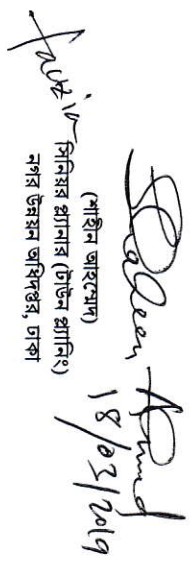 Shaheen Ahmed
18/03/2019
(শাহীন আহম্মেদ)
সিনিয়র প্ল্যানার (টাউন প্ল্যানিং)
নগর উন্নয়ন অধিদপ্তর, ঢাকা
fauzia